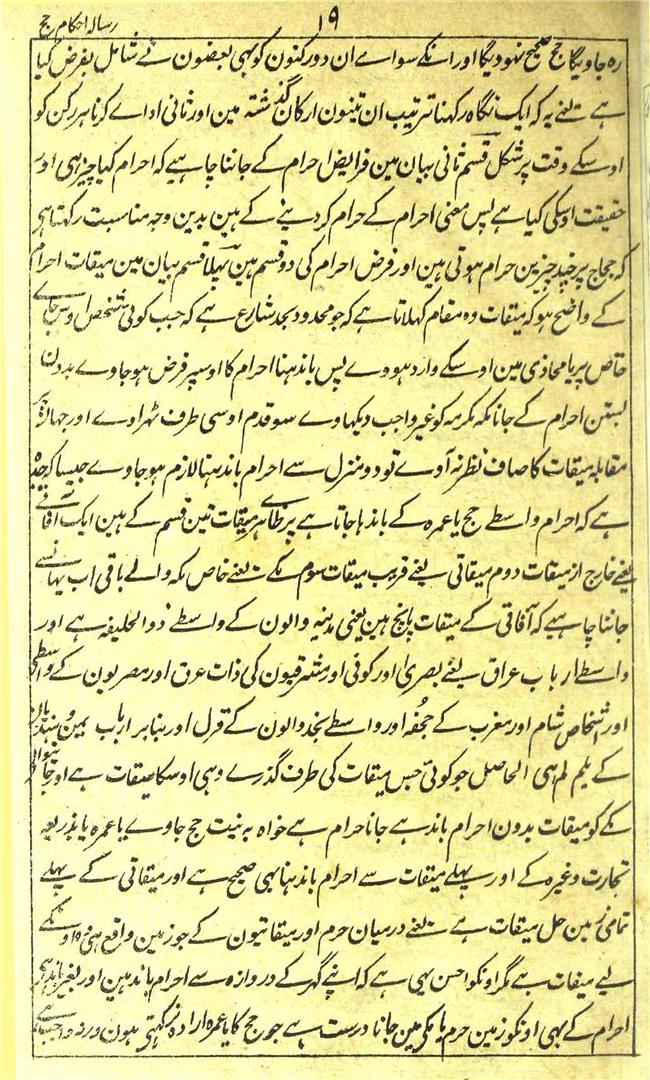 ۱۹ رسالہ احکام حج
رہ جاویگا حج صحیح نہودیگا اور انکے سواے ان دو رکنون کو بہی بعضون نے شامل بفرض کیا
ہے یعنے یہ کہ ایک نگاہ رکہنا ترتیب ان تینون ارکان گذشتہ مین اور ثانی اداے کرنا ہر رکن کو
اوسکے وقت پر شکل قسم ثانی بیان مین فرایض احرام کے جاننا چاہیے کہ احرام کیا چیز ہی اور
حقیقت اوسکی کیا ہے پس معنی احرام کے حرام کر دینے کے ہین بدین وجہ مناسبت رکہتا ہی
کہ حجاج پر چند چیزین حرام ہوتی ہین اور فرض احرام کی دو قسم ہین پہلا قسم بیان مین میقات احرام
کے واضح ہو کہ میقات وہ مقام کہلاتا ہے کہ جو محدود بحد شارع ہے کہ جب کوئی شخص اوس جاے
خاص پر یا محاذی مین اوسکے وارد ہووے پس باندہنا احرام کا اوسپر فرض ہو جاوے بدون
بستن احرام کے جانا مکہ مکرمہ کو غیر واجب دیکہاوے سو قدم اوسی طرف ٹہراوے اور جہاز پر
مقابلہ میقات کا صاف نظر نہ آوے تو دو منزل سے احرام باندہنا لازم ہو جاوے جیسا کہ جدہ
ہے کہ احرام واسطے حج یا عمرہ کے باندہا جاتا ہے پر ظاہر میقات تین قسم کے ہین ایک آفاقے
یعنے خارج از میقات دوم میقاتی یعنے قریب میقات سوم مکے یعنے خاص مکہ والے باقی اب یہانسے
جاننا چاہیے کہ آفاقی کے میقات پانچ ہین یعنی مدینہ والون کے واسطے ذوالحلیفہ ہے اور
واسطے ارباب عراق یعنے بصری اور کوفی اور مشرقیون کی ذات عرق اور مصریون کے واسطے
اور اشخاص شام اور مغرب کے جحفہ اور واسطے نجد والون کے قرن اور بنا بر ارباب یمن و
کے یلملم ہی الحاصل جو کوئی جس میقات کی طرف گذرے وہی اوسکا میقات ہے اور
مکے کو میقات بدون احرام باندہے جانا حرام ہے خواہ بہ نیت حج جاوے یا عمرہ یا بذریعہ
تجارت وغیرہ کے اور پہلے میقات سے احرام باندہنا بہی صحیح ہے اور میقاتی کے پہلے
تمامی زمین حل میقات ہے یعنے درمیان حرم اور میقاتیون کے جو زمین واقع ہی وہ اونکے
لیے میقات ہے مگر اونکو احسن یہی ہے کہ اپنے گہر کے دروازہ سے احرام باندہین اور بغیر باندہے
احرام کے بہی اونکو زمین حرم یا مکی مین جانا درست ہے جو حج کا یا عمرہ ارادہ نرکہتی ہون ورنہ واجب ہے